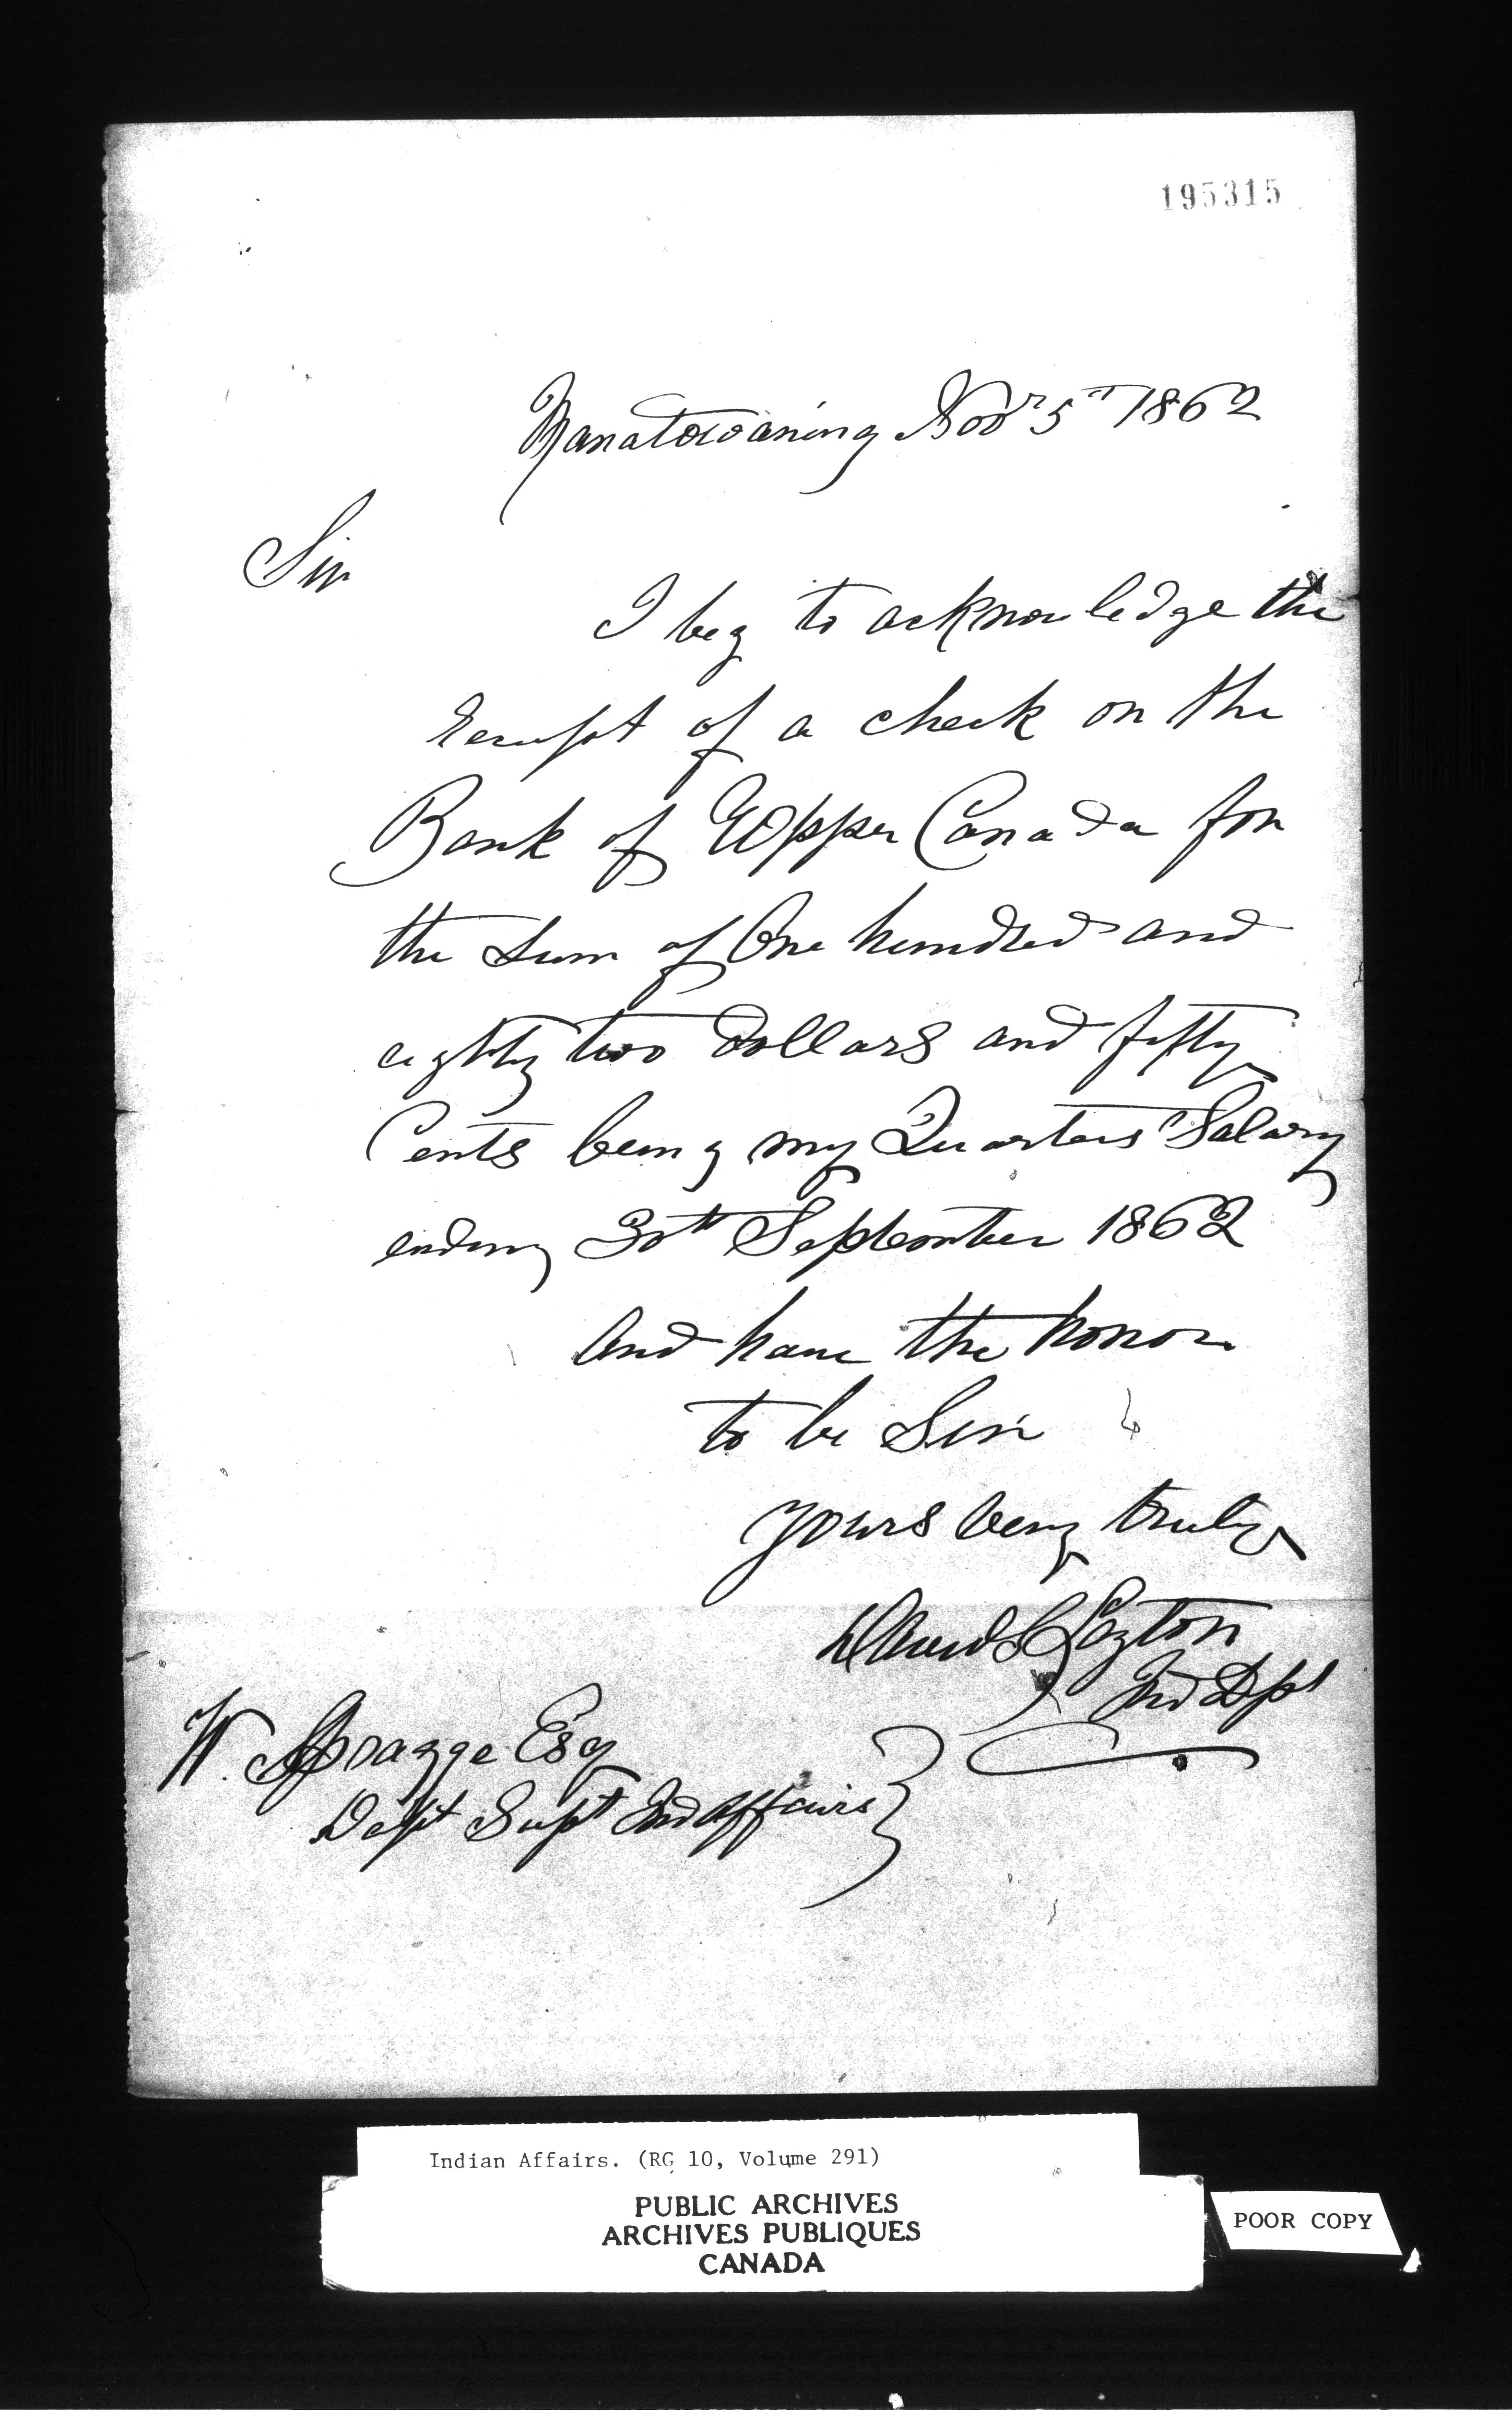 195315
Manatowaning Novr 5th 1862
Sir
I beg to acknowledge the
receipt of a check on the
Bank of Upper Canada for
the Sum of One hundred and
eighty two dollars and fifty
Cents being my Quarters Salary
ending 30th September 1862
And have the honor
to be Sir
yours very truly
David S Layton
Ind Dpt
W. Spragge Esq
Dept Supt Ind Affairs
Indian Affairs. (RG 10, Volume 291)
PUBLIC ARCHIVES
ARCHIVES PUBLIQUES
CANADA
POOR COPY